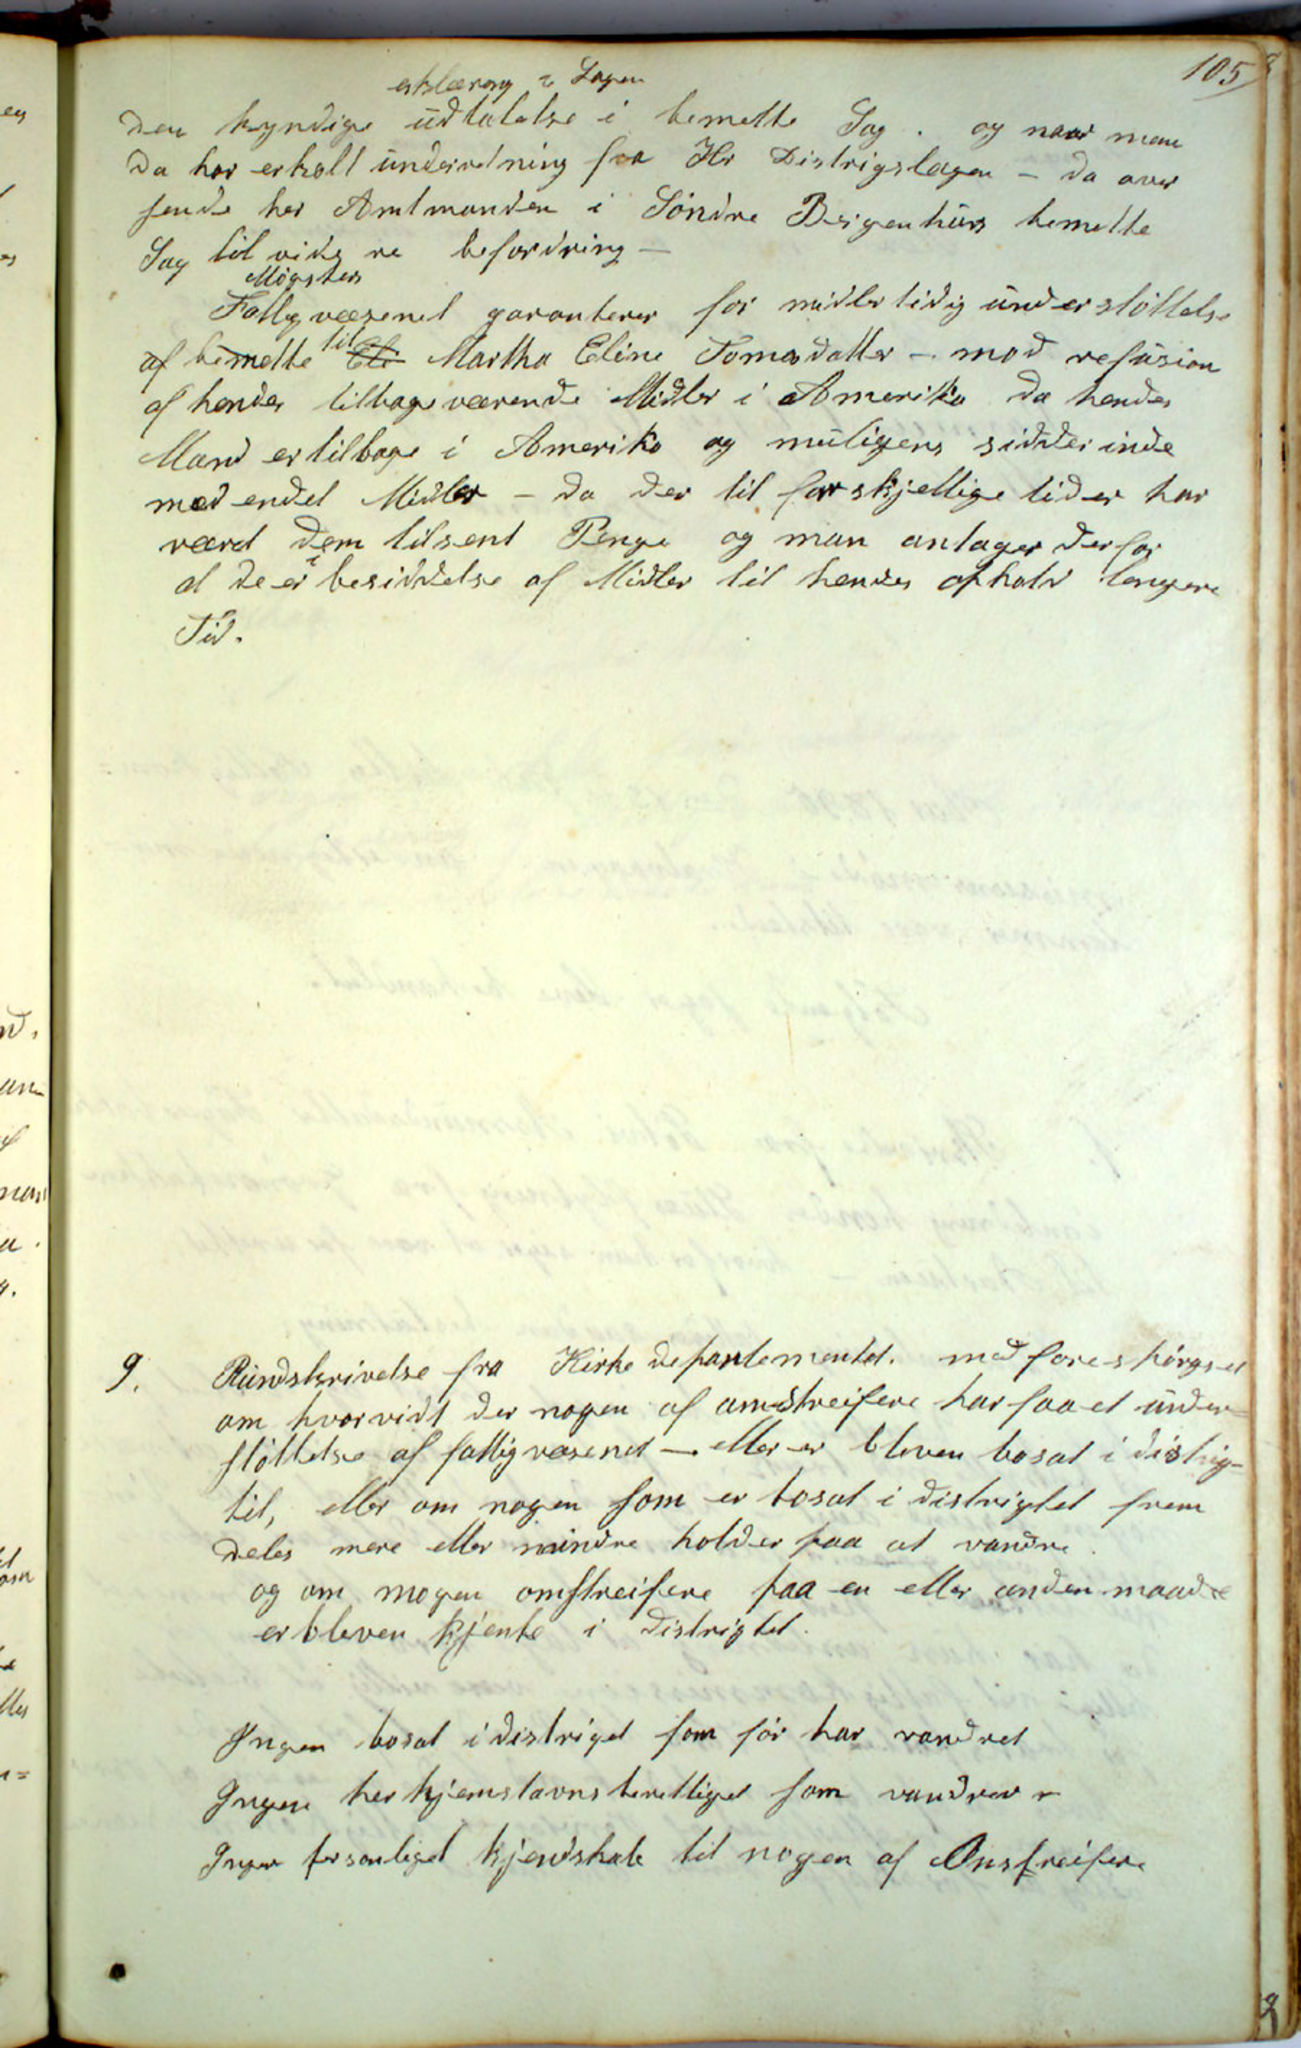 105
erklæring i Sagen
den kyndige udtalelse i bemelte Sag. og naar man
da har erholt underretning fra Hr Distrigslægen – da over
sende her Amtmanden i Söndre Bergenhus bemelte
Sag til vide re befordring –
Mögsters
Fattigvæsenet garanterer for midlertidig understöttelse
af bemelte til Martha Eline Tomasdatter – mod refusion
af hendes tilbageværende Midler i Amerika da hendes
Mand er tilbage i Amerika og muligens sidder inde
med endel Midler – da der til forskjellige tider har
værd dem tilsent Penge og man antager derfor
at de er i besiddelse af Midler til hendes ophold længere
Tid.
9. Rundskrivelse fra Kirke departementet. med forespörgsel
om hvorvidt der nogen af omstreifere har faaet under=
stöttelse af fattigvæsenet – eller er bleven bosat i distrig-
tet, eller om nogen som er bosat i distrigtet frem
deles mere eller mindre holder paa at vandre.
og om nogen omstreifere paa en eller anden maade
er bleven kjente i distrigtet.
Ingen bosat i distriget som för har vandret
Ingen her hjemstavnsberettiget som vandrer
Ingen personliget kjendskab til nogen af Omstreifere